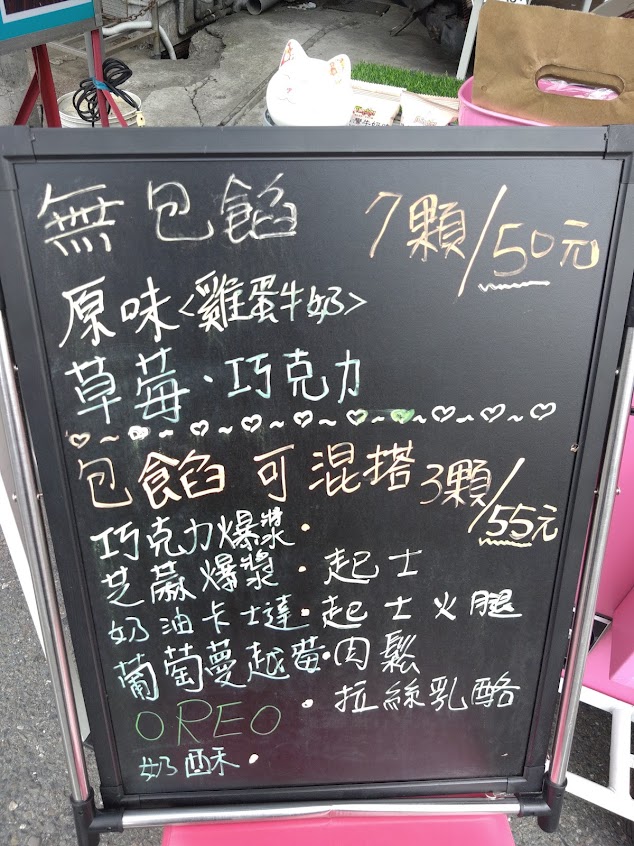 無包餡 7顆/50元
原味<雞蛋牛奶>
草莓·巧克力
包餡 可混搭 3顆/55元
巧克力爆漿·
芝蔴爆漿·起士
奶油卡士達·起士火腿
葡萄蔓越莓·肉鬆
OREO·拉絲乳酪
奶酥·